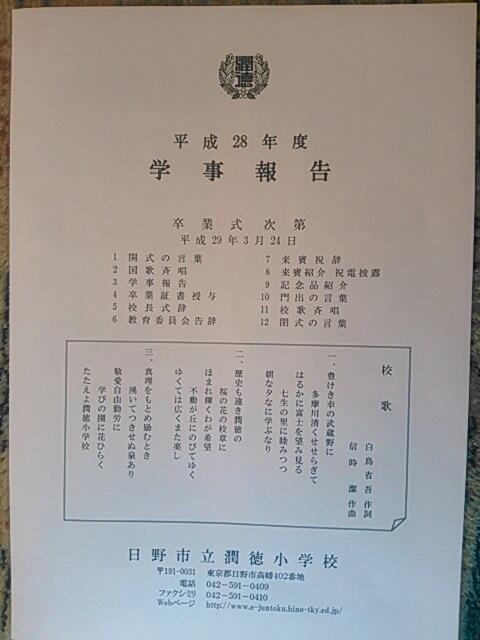 潤徳
平成28年度
学事報告
卒業式次第
平成29年3月24日
1 開式の言葉
2 国歌斉唱
3 学事報告
4 卒業証書授与
5 校長式辞
6 教育委員会告辞
7 来賓祝辞
8 来賓紹介 祝電披露
9 記念品紹介
10 門出の言葉
11 校歌斉唱
12 閉式の言葉
校歌
白鳥省吾 作詞
信時潔 作曲
一、豊けき幸の武蔵野に
多摩川清くせせらぎて
はるかに富士を望み見る
七生の里に睦みつつ
朝な夕なに学ぶなり
二、歴史も遠き潤徳の
桜の花の校章に
ほまれ輝くわが希望
不動が丘にのびてゆく
ゆくては広くまた楽し
三、真理をもとめ励むとき
湧いてつきせぬ泉あり
敬愛自由勤労に
学びの園に花ひらく
たたえよ潤徳小学校
日野市立潤徳小学校
〒191-0031 東京都日野市高幡402番地
電話 042-591-0409
ファクシミリ 042-591-0410
Webページ http://www.e-juntoku.hino-tky.ed.jp/